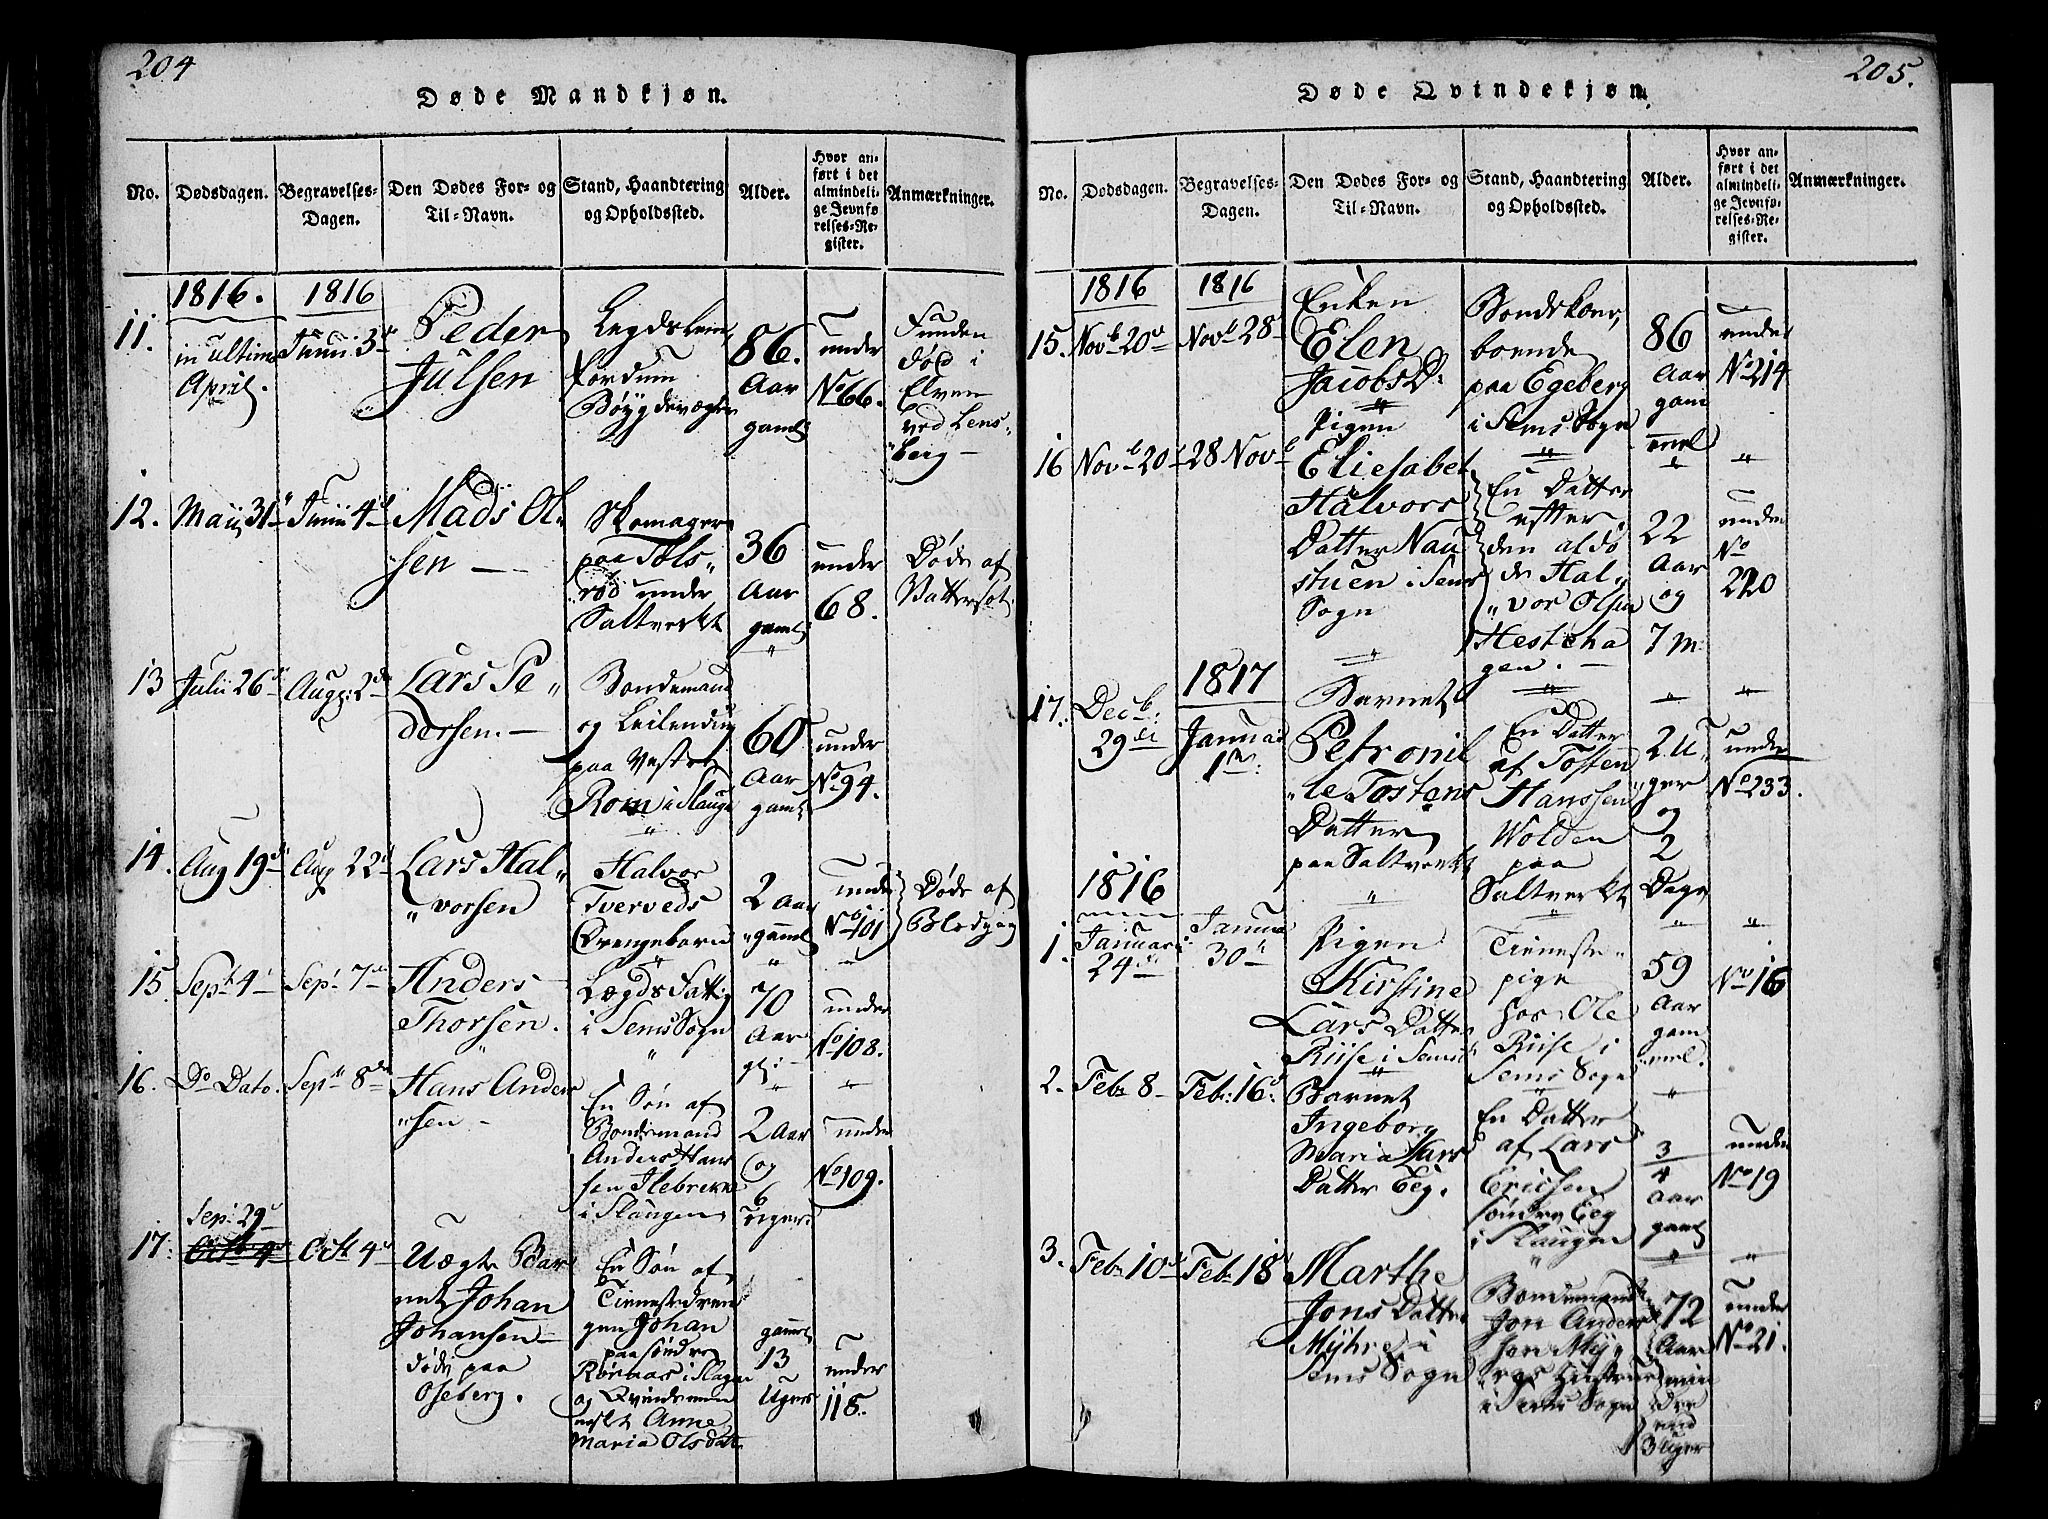 204
Døde Mandkjøn.
No.
Dødsdagen.
Begravelses-
Dagen.
Den Dødes For- og
Til-Navn.
Stand, Haandtering
og Opholdssted.
Alder.
Hvor an-
ført i det
almindeli-
ge Jevnfø-
relses-Re-
gister.
Anmærkninger.
1816.
1816
11.
in ultimo
April.
Junii 3
Peder
Julsen
Legdslem,
fordum
Bøygdevægter
86.
Aar
gaml
under
No 66.
Funden
død i
Elven
ved Lens-
berg
12.
Maij 31
Junii 4
Mads Ol-
sen
Skomager
paa Tols-
rød under
Saltverkt
36
Aar
gaml
under
68.
Døde af
Vattersot.
13
Julii 26
Aug: 2
Lars Pe-
dersen.
Bondemand
og Leilending
paa Vestre
Rom i Slaugn
60
Aar
gaml
under
No 94.
14.
Aug 19
Aug 22
Lars Hal-
vorsen
Halvor
Tverveds
Drengebarn
2 Aar
gaml
under
No 101
Døde af
Blodgag
15.
Sept 4
Sept 7
Anders
Thorsen.
Lægds Fattig
i Sems Sogn
70
Aar
gl:
under
No 108.
16.
Do Dato.
Sept 8
Hans Ander
sen
En Søn af
Bondemand
Anders Hans
sen Ilebrekke
i Slaugen
2 Aar
og
6
Uger.
under
No 109.
17.
Sep: 29
Octb 4
Octb 4
Uægte Bar
net Johan
Johansen
døde paa
Oseberg.
En Søn af
Tienestedren
gen Johan
paa søndre
Rørnas i Slagn
og Qvindemen
nesket Anne
Maria Olsdatt
gamel
13
Uger
under
118.
205.
Døde Qvindekjøn.
No.
Dødsdagen.
Begravelses-
Dagen.
Den Dødes For- og
Til-Navn.
Stand, Haandtering
og Opholdssted.
Alder.
Hvor an-
ført i det
almindeli-
ge Jevnfø-
relses-Re-
gister.
Anmærkninger.
1816
1816
15.
Novb 20
Novb 28
Enken
Elen
Jacobs D:
Bondekone,
boende
paa Egeberg
i Sems Sogn
86
Aar
gam
mel
under
No 214
16
Novb 20
28 Novb
Pigen
Eliesabet
Halvors
Datter Nau
stuen i Sems
Sogn
En Datter
efter
den afdø
de Hal-
vor Olsen
Hesteha
gen.
22
Aar
og
7 m
under
No
220
17.
Decb:
29
1817
Januar
1
Barnet
Petronil
le Tostens
Datter
paa Saltverkt
En Datter
af Tosten
Hanssen
Wolden
paa
Saltverkt
2 U-
ger
og
2
Dage
under
No 233.
1816
1.
Januari
24
Janua
30
Pigen
Kirstine
Lars Datter
Riise i Sems
Tieneste-
pige
hos Ole
Riise i
Sems Sogn
59
Aar
gam
mel.
No 16
2.
Feb: 8
Feb: 16
Barnet
Ingeborg
Maria Lars
Datter Eeg.
En Datter
af Lars
Ericsen
søndre Eeg
i Slaugen
3
4
Aar
gaml
under
No 19
3.
Feb: 10
Feb: 18
Marthe
Jons Datter
Myhre i
Sems Sogn
Bondemand
Jon Anders
sen My-
res Hustrue
i Sems Sogn
72
Aar
min
dre
end
3 Uger
under
No 21.